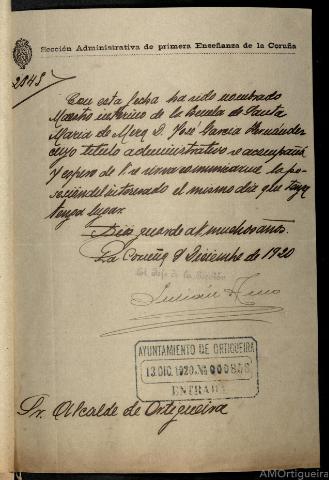 Sección Administrativa de primera Enseñanza de la Coruña
2848
Con esta fecha ha sido nombrado
Maestro interino de la Escuela de Santa
Maria de Mera D. José García Fernández
cuyo titulo administrativo se acompaña
Y espero de V. se sirva comunicarme la po-
sesión del interesado el mismo día que
tenga lugar.
Dios guarde a V. muchos años.
La Coruña 9 Diciembre de 1920
El Jefe de la Sección
Julián
AYUNTAMIENTO DE ORTIGUEIRA
13 DIC. 1920
ENTRADA
Sr. Alcalde de Ortigueira
AMOrtigueira